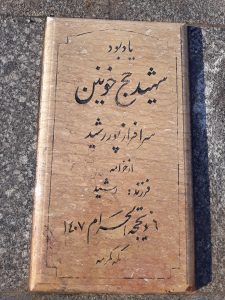 یادبود
شهید حج خونین
سرافراز پور رشید
فرزند: رشید
۶ ذیحجة الحرام ۱۴۰۷
مکه مکرمه